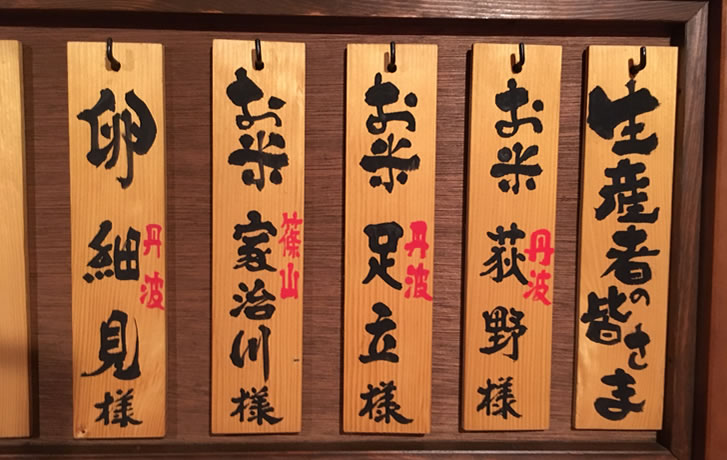 生産者の皆さま
お米 丹波 荻野様
お米 丹波 足立様
お米 篠山 家治川様
卵 丹波 細見様